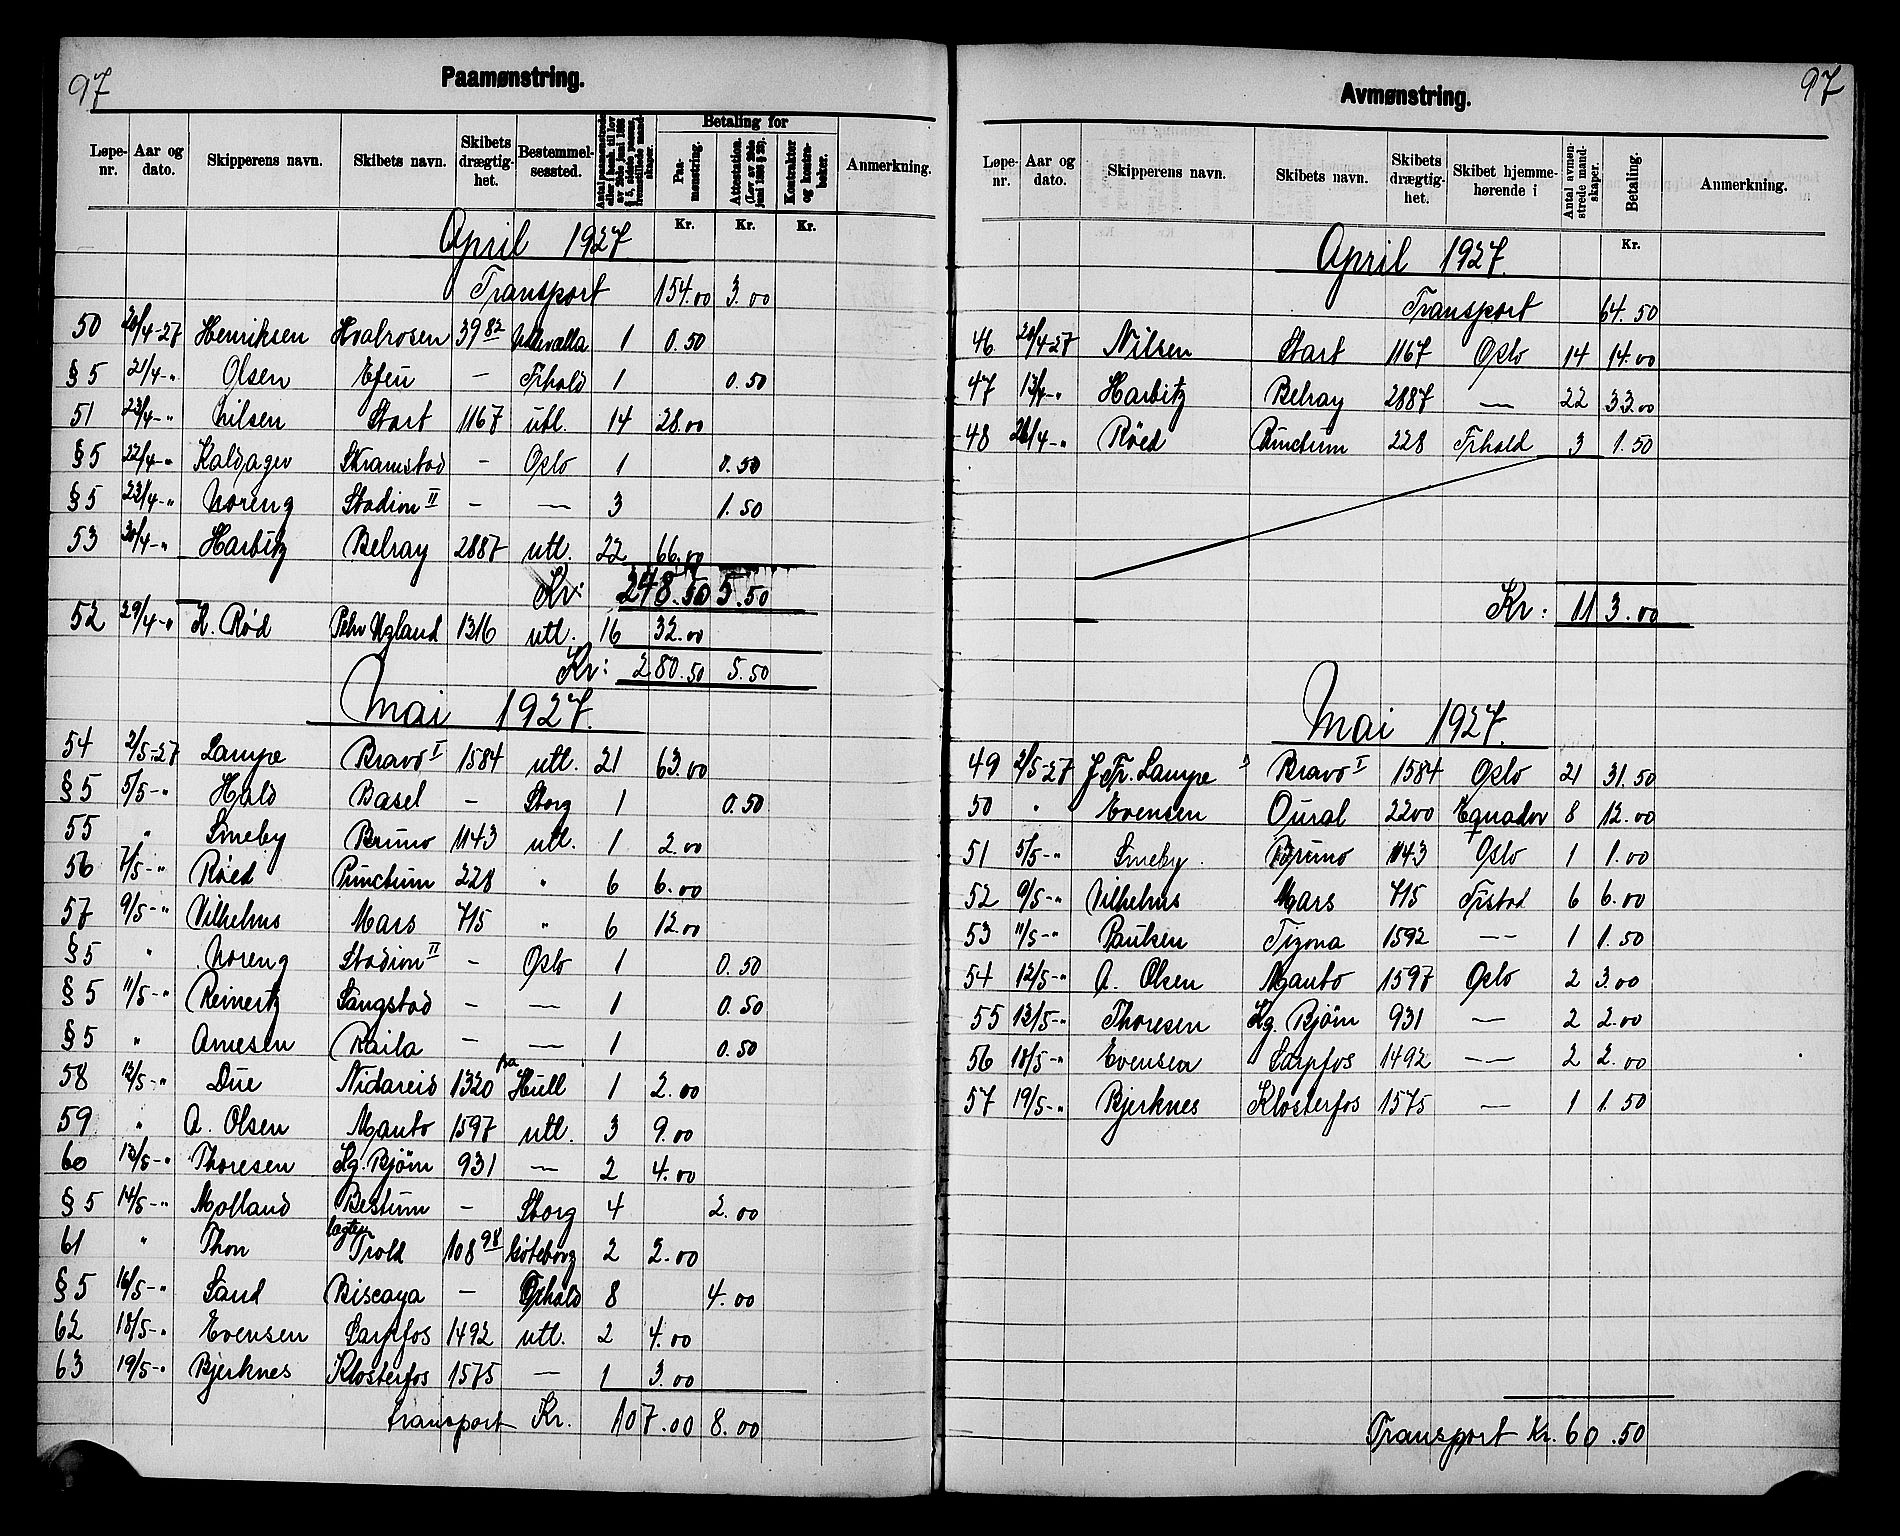 97
Paamønstring.
Løpe-nr. Aar og dato. Skipperens navn. Skibets navn. Skibets drægtighet. Bestemmelsessted. Betaling for Paamønstring. Attestation. (Lov av 29de juni 1888 § 29). Kontrakter og kontrabøker. Anmerkning.
Kr. Kr. Kr.
April 1927.
Transport 154.00 3.00
50 20/4-27 Henriksen Hvalrosen 39 82 Uddevalla 1 0.50
§5 21/4-" Olsen Efeu - Frhald 1 0.50
51 23/4-" Nilsen Start 1167 utl. 14 28.00
§5 22/4-" Kaldager Skramstad - Oslo 1 0.50
§5 23/4-" Noreng Stadion II - — 3 1.50
53 30/4-" Harbitz Belray 2887 utl. 22 66.00
Kr: 248.50 5.50
52 29/4-" K. Rød Pehr Ugland 1316 utl. 16 32.00
Kr: 280.50 5.50
Mai 1927.
54 2/5-27 Lampe Bravo I 1584 utl. 21 63.00
§5 5/5-" Hald Basel - Sborg 1 0.50
55 " Smeby Bruno 1143 utl. 1 2.00
56 7/5-" Røed Punctum 228 " 6 6.00
57 9/5-" Vilhelms Mars 715 " 6 12.00
§5 " Noreng Stadion II - Oslo 1 0.50
§5 11/5-" Reinertz Sangstad - — 1 0.50
§5 " Arnesen Raila - — 1 0.50
58 12/5-" Due Nidareid 1320 pa Hull 1 2.00
59 " A. Olsen Manto 1597 utl. 3 9.00
60 13/5-" Thoresen Kg. Bjørn 931 — 2 4.00
§5 14/5-" Molland Bestum - Sborg 4 2.00
61 " Thon lagter Trold 108 98 Göteborg 2 2.00
§5 16/5-" Sand Biscaya - Frhald 8 4.00
62 18/5-" Evensen Sarpfos 1492 utl. 2 4.00
63 19/5-" Bjerknes Klosterfos 1575 — 1 3.00
transport Kr. 107.00 8.00
97
Avmønstring.
Løpe-nr. Aar og dato. Skipperens navn. Skibets navn. Skibets drægtighet. Skibet hjemmehørende i Antal avmønstrede mandskaper. Betaling. Anmerkning.
Kr.
April 1927.
Transport 64.50
46 20/4-27 Nilsen Start 1167 Oslo 14 14.00
47 13/4-" Harbitz Belray 2887 — 22 33.00
48 26/4-" Røed Punctum 228 Frhald 3 1.50
Kr: 113.00
Mai 1927.
49 2/5-27 J. Fr. Lampe Bravo I 1584 Oslo 21 31.50
50 " Evensen Oural 2200 Equador 8 12.00
51 5/5-" Smeby. Bruno 1143 Oslo 1 1.00
52 9/5-" Vilhelms Mars 715 Frstad 6 6.00
53 11/5-" Paulsen Tizona 1592 -- 1 1.50
54 12/5-" A. Olsen Manto 1597 Oslo 2 3.00
55 13/5-" Thoresen Kg. Bjørn 931 — 2 2.00
56 18/5-" Evensen Sarpfos 1492 -- 2 2.00
57 19/5-" Bjerknes Klosterfos 1575 — 1 1.50
Transport Kr. 60.50